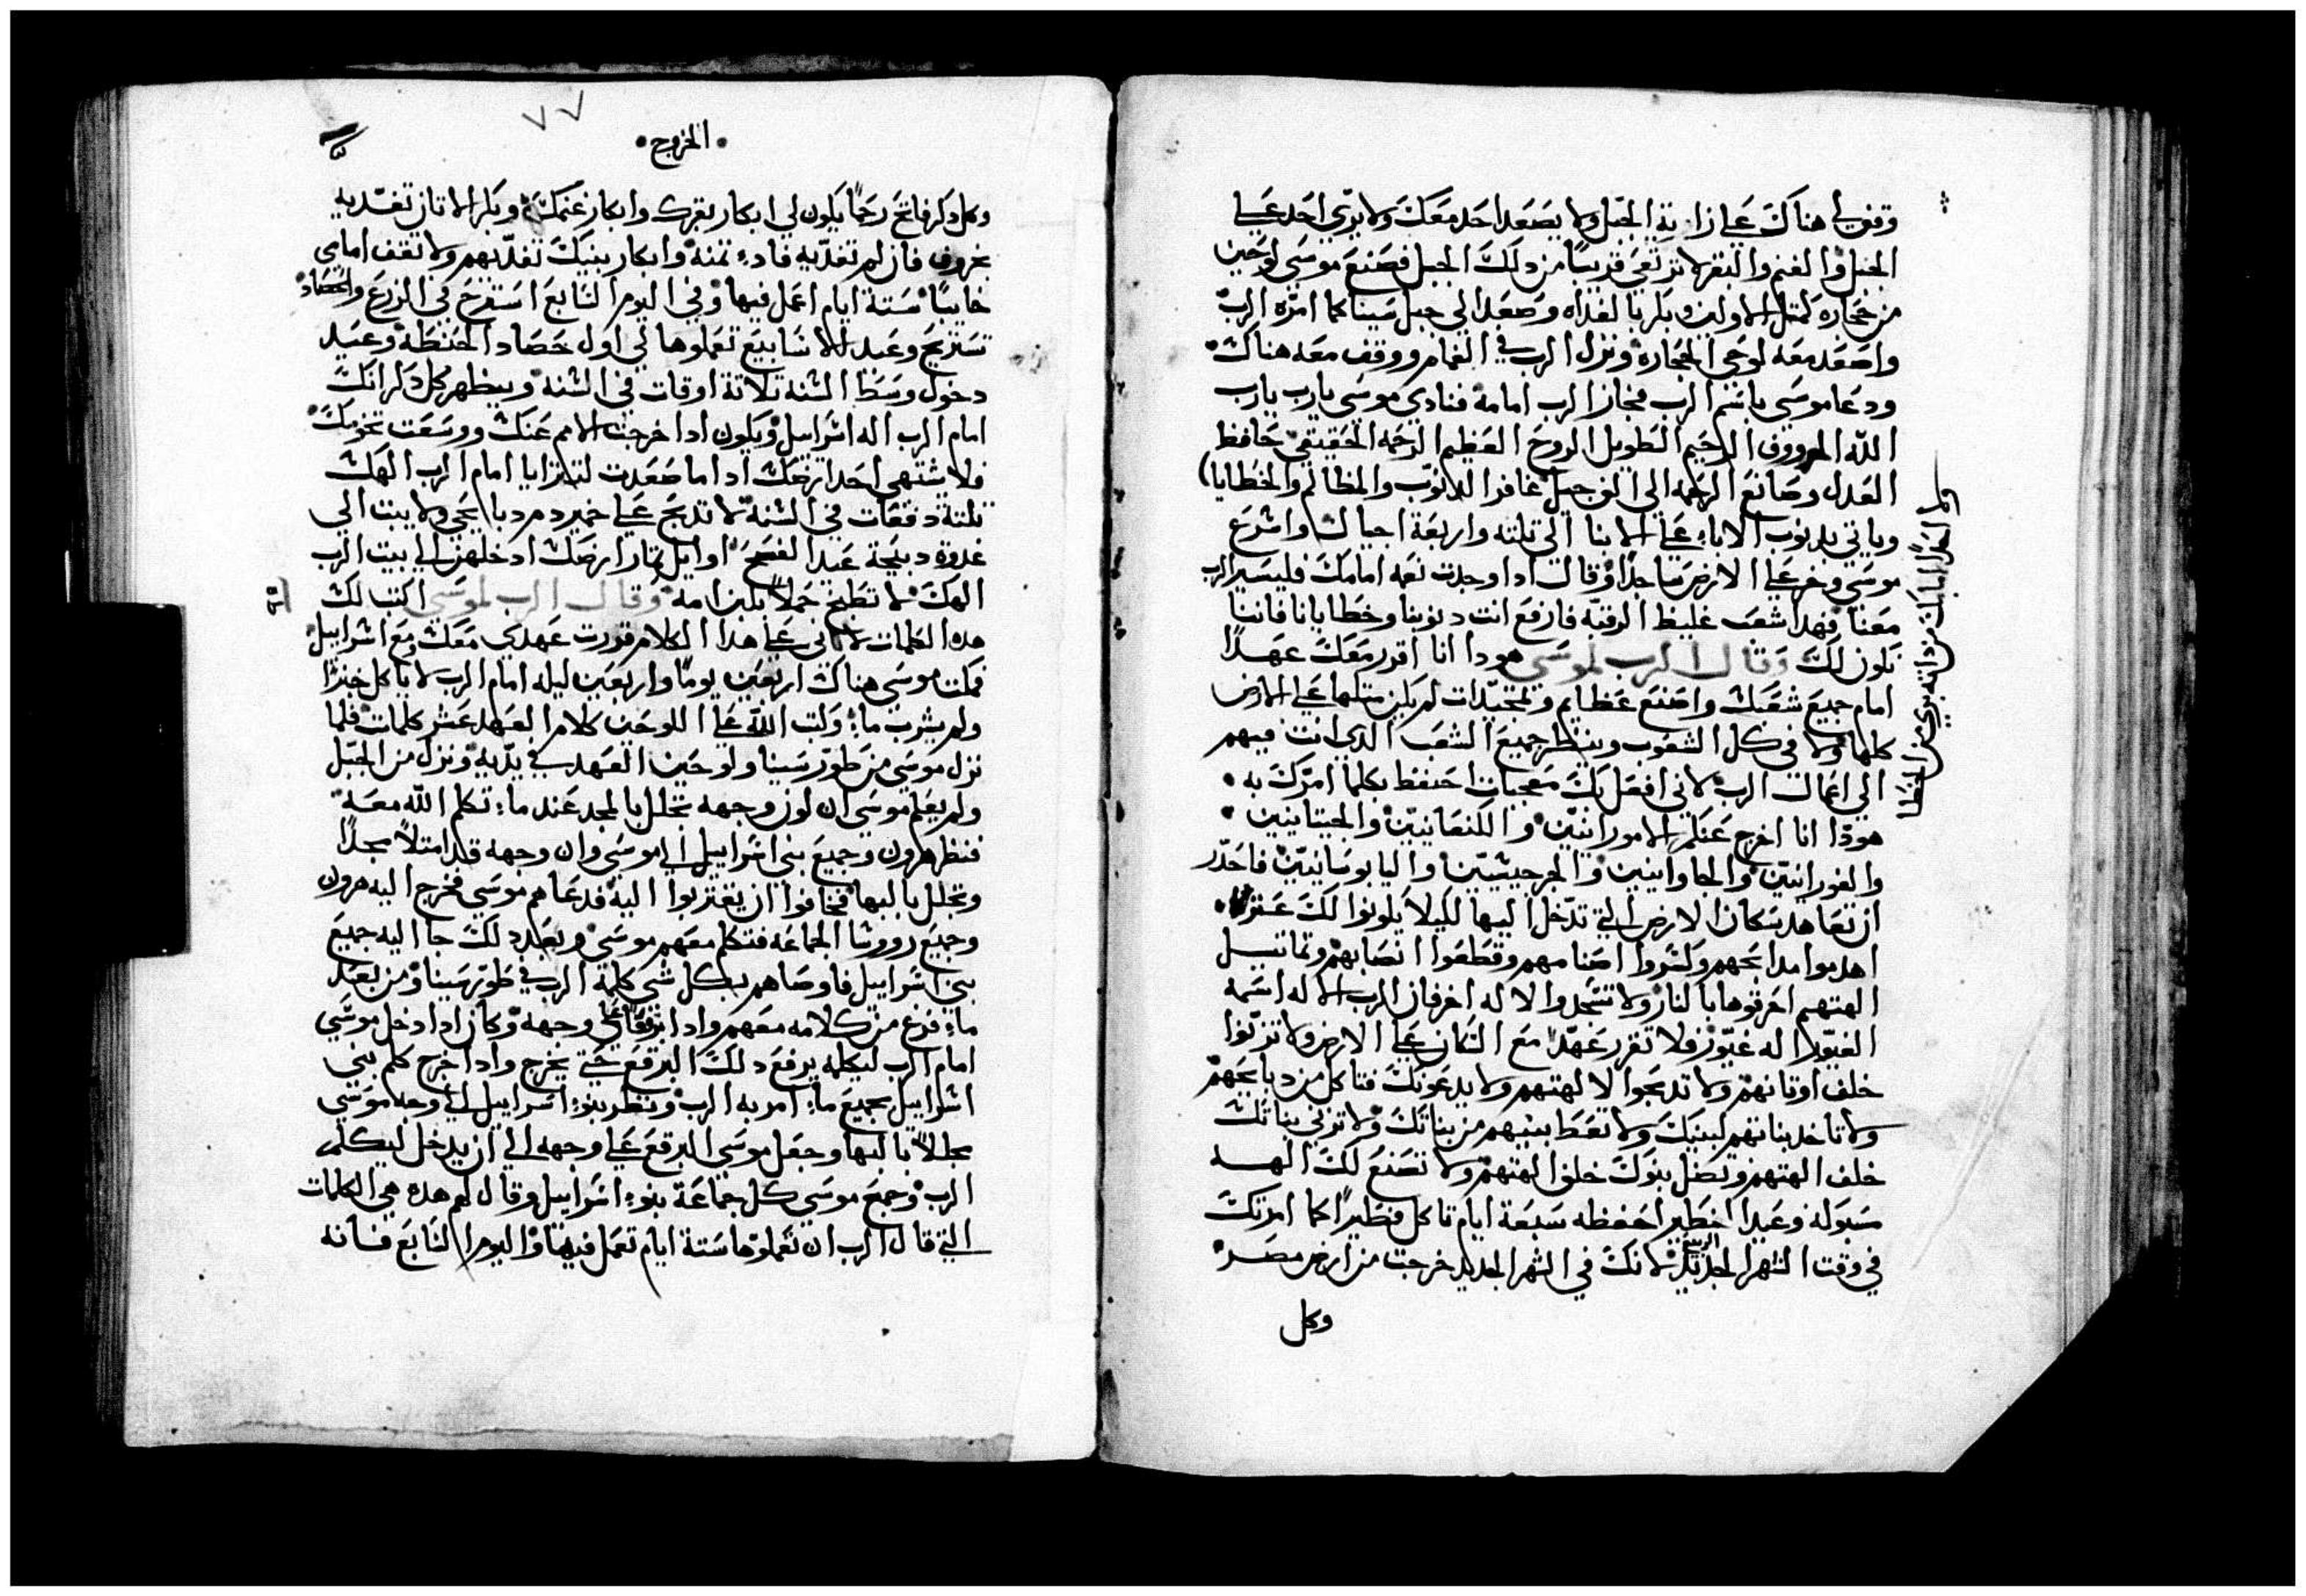 وقف لي هناك على زاوية الجبل ولا يصعد احد معك ولا يري احد على
الجبل والغنم والبقر لا ترتعي قريبًا من دلك الجبل فصنع موسى لوحين
من حجاره كمتل الاولين وبكر بالغداه وصعد الى جبل سينا كما امره الرب
واصعد معه لوحي الحجاره ونزل الرب في الغمام ووقف معه هناك
ودعا موسى باسم الرب فجاز الرب امامه فنادي موسى يارب يارب
الله الرووف الرحيم الطويل الروح العظيم الرحمه الحقيقي حافظ
العدل وصانع الرحمه الى الوف جيل غافر الدنوب والمظالم والخطايا
وياتي بدنوب الاباء على الابنا الى تلته واربعة اجيال واسرع
موسى وخر على الارض ساجدًا وقال ادا وجدت نعمه امامك فليسير الرب
معنا فهدا شعب غليظ الرقبه فارفع انت دنوبنا وخطايانا فاننا
نكون لك وقال الرب لموسى هودا انا اقرر معك عهدًا
امام جميع شعبك واصنع عظايم وتمجيدات لم يكن متلها على الارض
كلها ولا في كل الشعوب وينظر جميع الشعب الدي انت فيهم
الي اعمال الرب لاني افعل بك معجبات احتفظ بكلما امرك به
هودا انا اخرج عنكم الامورانيين والكنعانيين والحيتانيين
والفورانيين والحاوانيين والجرجيشيين واليابوسانيين فاحدر
ان تعاهد سكان الارض التي تدخل اليها لكيلا يكونوا لك عترة
اهدموا مدابحهم وكسروا اصنامهم وقطعوا انصابهم وتماتيل
الهتهم احرقوها بالنار ولا تسجدوا لاله اخر فان الرب الاله اسمه
الغيور الاه غيور فلا تقرر عهدًا مع السكان على الارض ولا تزنوا
خلف اوتانهم ولا تدبحوا لالهتهم ولا يدعونك فتاكل من دبايحهم
ولا تاخد بناتهم لبنيك ولا تعط بنيهم من بناتك ولا تزني بناتك
خلف الهتهم ويضل بنوك خلف الهتهم ولا تصنع لك الهه
مسبوكه وعيد الفطير احفظه سبعة ايام تاكل فطيرًا كما امرتك
في وقت الشهر الجديد لانك في الشهر الجديد خرجت من ارض مصر
وكل
الخروج
٧٧
وكل دكر فاتح رحمًا يكون لي ابكار بقرك وابكار غنمك وبكر الاتان تفديه
بخروف فان لم تفديه فادي تمنه وابكار بنيك تفديهم ولا تقف امامي
خايبًا ستة ايام اعمل فيها وفي اليوم السابع استرح في الزرع والحصاد
تستريح وعيد الاسابيع تعملوها لي اول حصاد الحنطه وعيد
دخول وسط السنه تلاتة اوقات في السنه ويظهر كل دكرانك
امام الرب اله اسراييل ويكون ادا اخرجت الامم عنك ووسعت تخومك
فلا يشتهي احد ارضك ادا ما صعدت لتترايا امام الرب الهك
تلتة دفعات في السنه لا تدبح على خمير دم دبايحي ولا يبت الي
غدوة دبيحة عيد الفسح اوايل تمار ارضك ادخلهن الى بيت الرب
الهك لا تطبخ حملاً بلبن امه وقال الرب لموسى اكتب لك
هده الكلمات لاني على هدا الكلام قررت عهدي معك ومع اسراييل
فمكت موسى هناك اربعين يومًا واربعين ليله امام الرب لا ياكل خبزًا
ولم يشرب ماء وكتب الله على اللوحين كلام العهد عشر كلمات فلما
نزل موسى من طور سينا ولوحين العهد في يديه ونزل من الجبل
ولم يعلم موسى ان لون وجهه تجلل بالمجد عند ماء تكلم الله معه
فنظر هرون وجميع بني اسراييل الى موسى وان وجهه قد امتلاً مجدًا
وتجلل بالبها فخافوا ان يقتربوا اليه فدعاهم موسى فخرج اليه هرون
وجميع رووسا الجماعه فتكلم معهم موسى وبعد دلك جا اليه جميع
بني اسراييل فاوصاهم بكل شي كلمة الرب في طور سينا ومن بعد
ماء فرغ من كلامه معهم وادا برقعًا على وجهه وكان ادا دخل موسى
امام الرب ليكلمه يرفع دلك البرقع حتى يخرج وادا خرج كلم بني
اسراييل بجميع ماء امر به الرب ونظر بنوء اسراييل الى وجه موسى
مجللاً بالبها وجعل موسى البرقع على وجهه الى ان يدخل ليكلم
الرب وجمع موسى كل جماعة بنوء اسراييل وقال لهم هده هي الكلمات
التي قال الرب ان تعملوها ستة ايام تعمل فيها واليوم السابع فانه